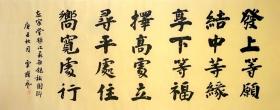 發上等願
結中等緣
享下等福
擇高處立
尋平處住
嚮寬處行
左宗棠題江蘇無錫梅園聯
秋月